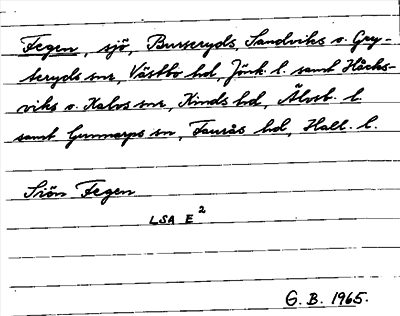 Fegen, sjö, Burseryds, Sandviks o. Gry-
teryds snr, Västbo hd, Jönk. l. samt Håcks-
viks o. Kalvs snr, Kinds hd, Älvsb. l.
samt Gunnarps sn, Faurås hd, Hall. l.
Sjön Fegen
LSA E 2
G. B. 1965.